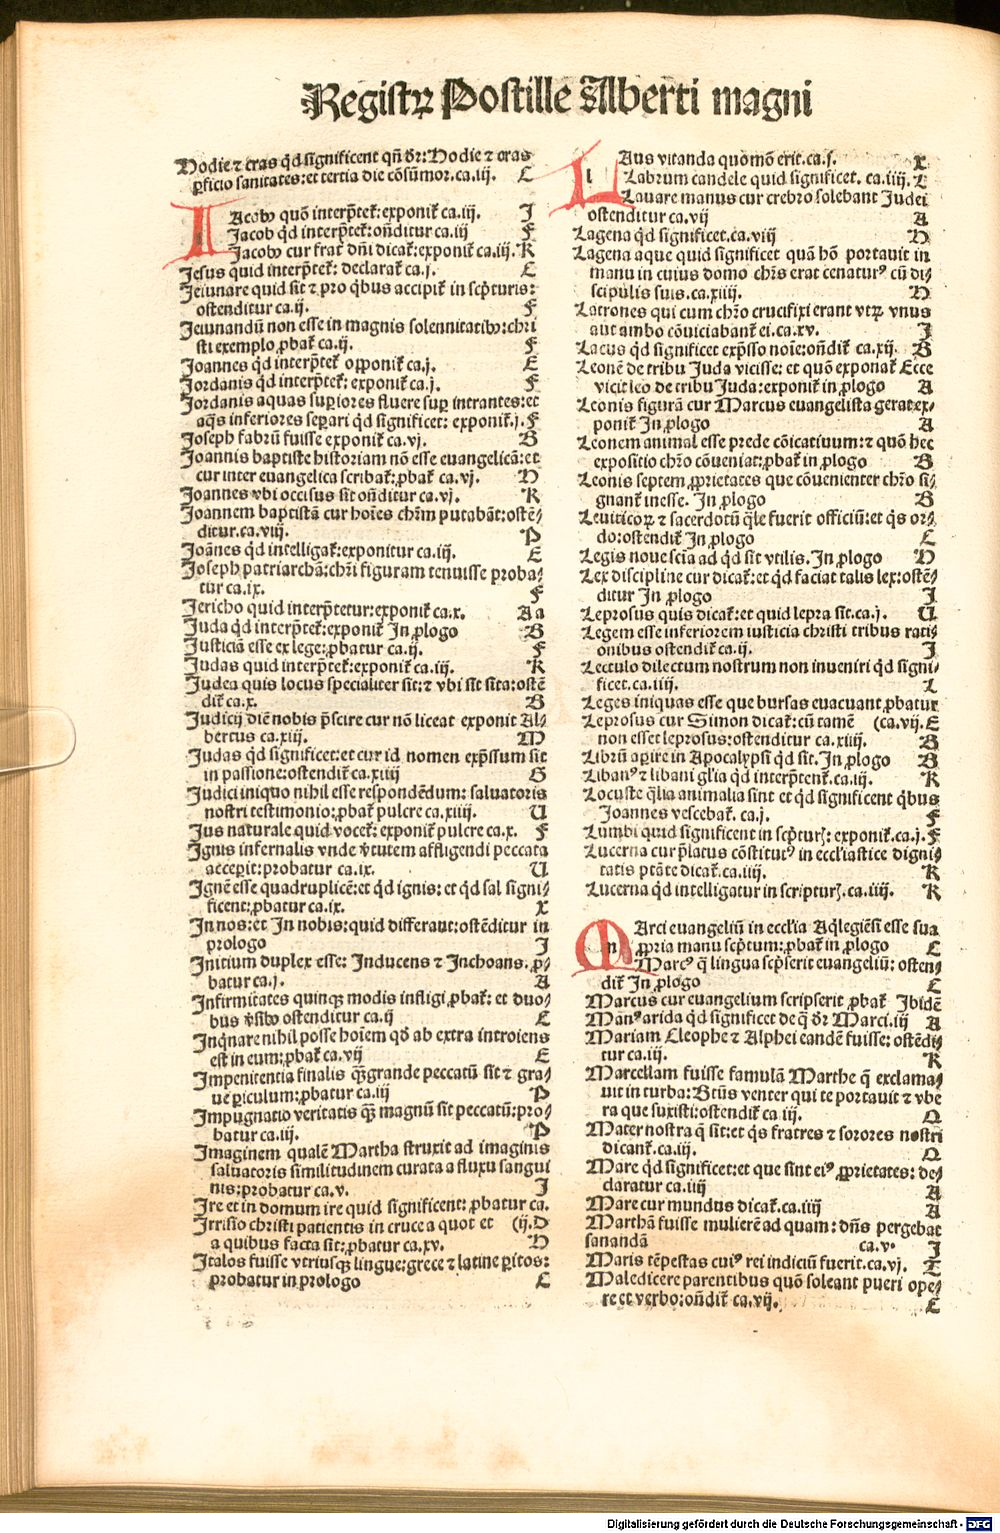 Registrꝝ Postille Alberti magni
Hodie ⁊ cras qd̄ significent qn̄ dr̄: Hodie ⁊ cras
ꝑficio sanitates: et tertia die cōsūmor. ca. iij. C
IAcob quō interp̄tet̄: exponit̄ ca. iij. I
Jacob qd̄ interp̄tet̄: on̄ditur ca. iij F
Jacob cur frat̄ dn̄i dicat̄: exponit̄ ca. iij. K
Jesus quid interp̄tet̄: declarat̄ ca. j. C
Jeiunare quid sit ⁊ pro qbus accipit̄ in scpturis:
ostenditur ca. ij. F
Jeiunandū non esse in magnis solennitatib: chri
sti exemplo ꝓbat̄ ca. ij. F
Joannes qd̄ interp̄tet̄ opponit̄ ca. j. E
Jordanis qd̄ interp̄tet̄: exponit̄ ca. j. F
Jordanis aquas suꝑiores fluere suꝑ intrantes: et
aqs inferiores seꝑari qd̄ significet: exponit̄. j. F
Joseph fabrū fuisse exponit̄ ca. vj. B
Joannis baptiste historiam nō esse euangelicā: et
cur inter euangelica scribat̄: ꝓbat̄ ca. vj. H
Joannes vbi occisus sit on̄ditur ca. vj. K
Joannem baptistā cur hoīes chr̄m putabāt: ostē-
ditur. ca. viij. P
Joānes qd̄ intelligat̄: exponitur ca. iij. E
Joseph patriarchā: chr̄i figuram tenuisse proba-
tur ca. ix. F
Jericho quid interp̄tetur: exponit̄ ca. x. Aa
Juda qd̄ interp̄tet̄: exponit̄ In ꝓlogo B
Justiciā esse ex lege: ꝓbatur ca. ij. F
Judas quid interp̄tet̄: exponit̄ ca. iij. K
Judea quis locus specialiter sit: ⁊ vbi sit sita: ostē
dit̄ ca. x. B
Judicij diē nobis p̄scire cur nō liceat exponit Al-
bertus ca. xiij. M
Judas qd̄ significet: et cur id nomen exp̄ssum sit
in passione: ostendit̄ ca. xiiij G
Judici iniquo nihil esse respondēdum: saluatoris
nostri testimonio: ꝓbat̄ pulcre ca. xiiij. U
Jus naturale quid vocet̄: exponit̄ pulcre ca. x. F
Ignis infernalis vnde v̄tutem affligendi peccata
acceꝑit: probatur ca. ix. U
Ignē esse quadruplicē: et qd̄ ignis: et qd̄ sal signi-
ficent: ꝓbatur ca. ix. X
In nos: et In nobis: quid differant: ostēditur in
prologo J
Initium duplex esse: Inducens ⁊ Inchoans. ꝓ-
batur ca. j. A
Infirmitates quinqꝫ modis infligi ꝓbat̄: et duo-
bus v̄sib ostenditur ca. ij C
Inqnare nihil posse hoīem qd̄ ab extra introiens
est in eum: ꝓbat̄ ca. vij E
Impenitentia finalis qꝫ grande peccatū sit ⁊ gra-
ue ꝑiculum: ꝓbatur ca. iij P
Impugnatio veritatis qꝫ magnū sit peccatū: pro-
batur ca. iij. P
Imaginem qualē Martha struxit ad imaginis
saluatoris similitudinem curata a fluxu sangui
nis: probatur ca. v. J
Ire et in domum ire quid significent: ꝓbatur ca.
Irrisio christi patientis in cruce a quot et (ij. D
a quibus facta sit: ꝓbatur ca. xv. H
Italos fuisse vtriusqꝫ lingue: grece ⁊ latine ꝑitos:
probatur in prologo C
LAus vitanda quōmō erit. ca. j. X
l Labrum candele quid significet. ca. iiij. L
Lauare manus cur crebro solebant Judei
ostenditur ca. vij A
Lagena qd̄ significet. ca. viij H
Lagena aque quid significet quā hō portauit in
manu in cuius domo chr̄s erat cenatur⁹ cū di-
scipulis suis. ca. xiiij. H
Latrones qui cum chr̄o crucifixi erant vtrꝝ vnus
aut ambo cōuiciabant̄ ei. ca. xv. J
Lacus qd̄ significet exp̄sso noīe: on̄dit̄ ca. xij. B
Leonē de tribu Juda vicisse: et quō exponat̄ Ecce
vicit leo de tribu Juda: exponit̄ in ꝓlogo A
Leonis figurā cur Marcus euangelista gerat: ex-
ponit̄ In ꝓlogo A
Leonem animal esse prede cōicatiuum: ⁊ quō hec
expositio chr̄o cōueniat: ꝓbat̄ in ꝓlogo B
Leonis septem ꝓprietates que cōuenienter chr̄o si-
gnant̄ inesse. In ꝓlogo B
Leuiticoꝝ ⁊ sacerdotū qle fuerit officiū: et qs or-
do: ostendit̄ In ꝓlogo C
Legis noue scīa ad qd̄ sit vtilis. In ꝓlogo H
Lex discipline cur dicat̄: et qd̄ faciat talis lex: ostē-
ditur In ꝓlogo J
Leprosus quis dicat̄: et quid lepra sit. ca. j. U
Legem esse inferiorem iusticia christi tribus rati-
onibus ostendit̄ ca. ij. J
Lectulo dilectum nostrum non inueniri qd̄ signi-
ficet. ca. iiij. L
Leges iniquas esse que bursas euacuant ꝓbatur
Leprosus cur Simon dicat̄: cū tamē (ca. vij. E
non esset leprosus: ostenditur ca. xiiij. B
Librū aꝑire in Apocalypsi qd̄ sit. In ꝓlogo B
Liban⁹ ⁊ libani gl̄ia qd̄ interp̄tent̄. ca. ij. K
Locuste qlia animalia sint et qd̄ significent qbus
Joannes vescebat̄. ca. j. F
Lumbi quid significent in scptur: exponit̄. ca. j. F
Lucerna cur p̄latus cōstitut⁹ in eccl'iastice digni-
tatis ptāte dicat̄. ca. iiij. K
Lucerna qd̄ intelligatur in scriptur. ca. iiij. K
MArci euangeliū in eccl'ia Aqlegiēsi esse sua
m ꝓpria manu scptum: ꝓbat̄ in ꝓlogo C
Marc⁹ q lingua scpserit euangeliū: osten-
dit̄ In ꝓlogo C
Marcus cur euangelium scripserit ꝓbat̄ Ibidē
Man⁹ arida qd̄ significet de q dr̄ Marci. iij A
Mariam Cleophe ⁊ Alphei eandē fuisse: ostēdi-
tur ca. iij. K
Marcellam fuisse famulā Marthe q exclama-
uit in turba: Btūs venter qui te portauit ⁊ vbe
ra que suxisti: ostendit̄ ca iij. Q
Mater nostra q sit: et qs fratres ⁊ sorores nostri
dicant̄. ca. iij. Q
Mare qd̄ significet: et que sint ei⁹ ꝓprietates: de-
claratur ca. iiij A
Mare cur mundus dicat̄. ca. iiij A
Marthā fuisse mulierē ad quam: dn̄s pergebat
sanandā ca. v. J
Maris tēpestas cui⁹ rei indiciū fuerit. ca. vj. T
Maledicere parentibus quō soleant pueri ope-
re et verbo: on̄dit̄ ca. vij. C
Digitalisierung gefördert durch die Deutsche Forschungsgemeinschaft - DFG